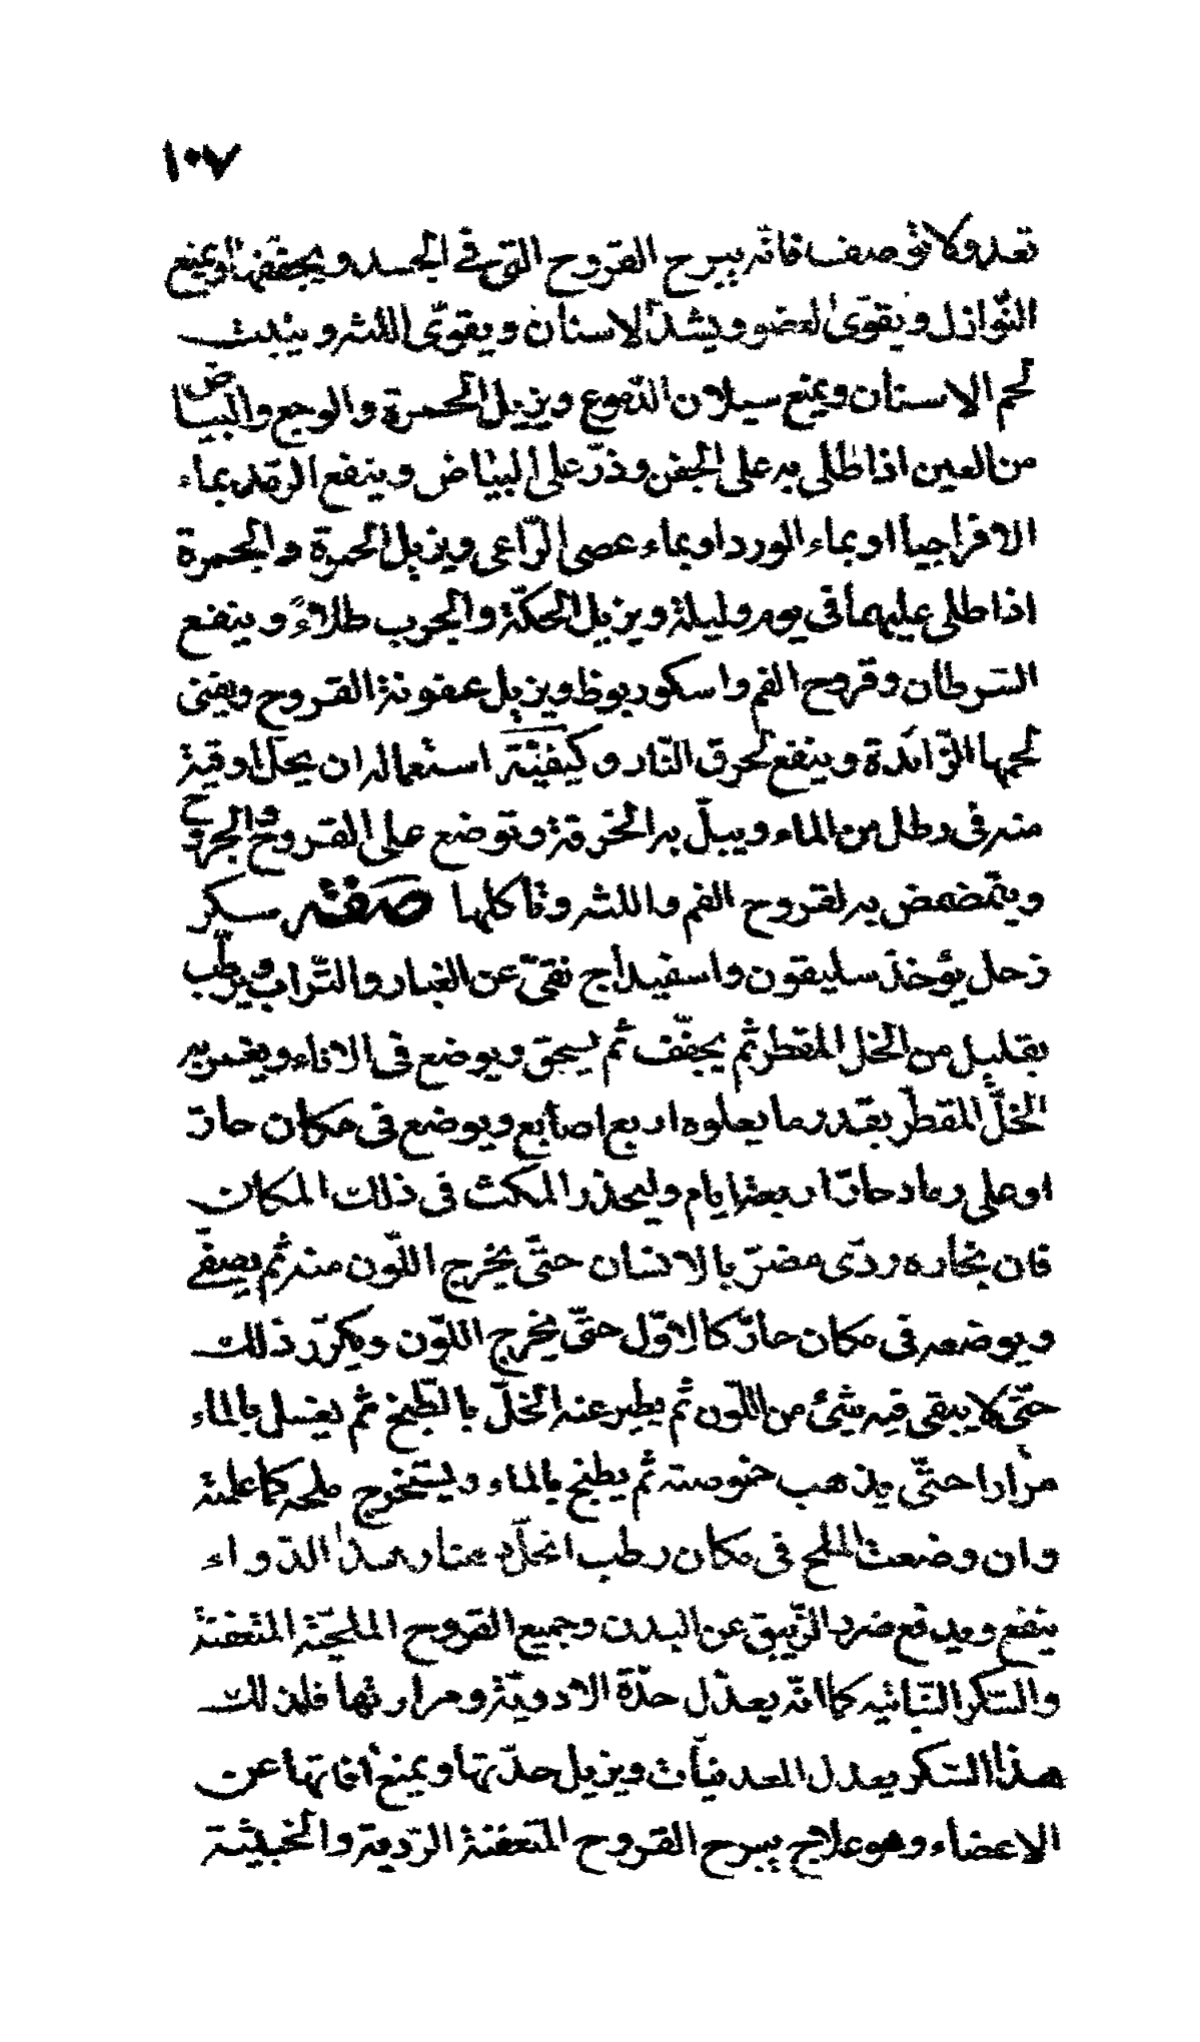 ١٠٧
تعد ولا توصف فانه يبرح القروح التى فى الجسد ويجففها ويمنع
النّوازل ويقوى العضو ويشدّ الاسنان ويقوّى اللثه وينبت
لحم الاسنان ويمنع سيلان الدّموع ويزيل الحمرة والوجع والبياض
من العين اذا طلى به على الجفن وذرّ على البياض وينفع الرمد بماء
الافراجيا او بماء الورد او بماء عصى الرّاعى ويزيل الحمرة والجمرة
اذا طلى عليهما فى يوم وليلة ويزيل الحكّة والجرب طلاءً وينفع
السّرطان وقروح الفم واسكوربوط ويزيل عفونة القروح ويفنى
لحمها الزّائدة وينفع لحرق النّار وكيفيّة استعماله ان يحلّ اوقية
منه فى رطل من الماء ويبلّ به الخرقة وتوضع على القروح والجروح
ويتمضمض به لقروح الفم واللثه وتأكلها صفة سكر
زحل يؤخذ سليقون واسفيداج نقىّ عن الغبار والتّراب ويرطّب
بقليل من الخل المقطر ثم يجفّف ثم يسحق ويوضع فى الاناء ويغمر به
الخلّ المقطّر بقدر ما يعلوه اربع اصابع ويوضع فى مكان حارّ
او على رماد حارّ اربعة ايام وليحذر المكث فى ذلك المكان
فان بخاره ردّى مضرّ بالانسان حتّى يخرج اللّون منه ثم يصفّى
ويوضعه فى مكان حارّ كالاوّل حتّى يخرج اللّون ويكرّر ذلك
حتّى لا يبقى فيه شئ من اللّون ثم يطير عنه الخلّ بالطّبخ ثم يغسل بالماء
مرارا حتّى يذهب حموصته ثم يطبخ بالماء ويستخرج ملحه كما علمته
وان وضعت الملح فى مكان رطب انحلّ منار هذا الدّواء
ينفع ويدفع ضرر الزّيبق عن البدن وجميع القروح المليحّة المتعفنة
والسّكر النّباتيه كما انّه يعدّل حدّة الادويّة ومرارتها فلذلك
هذا السّكر يعدل المعدنيّات ويزيل حدّتها ويمنع أفاتها عن
الاعضاء وهو علاج يبرح القروح المتعفنة الرّدية والخبيثة